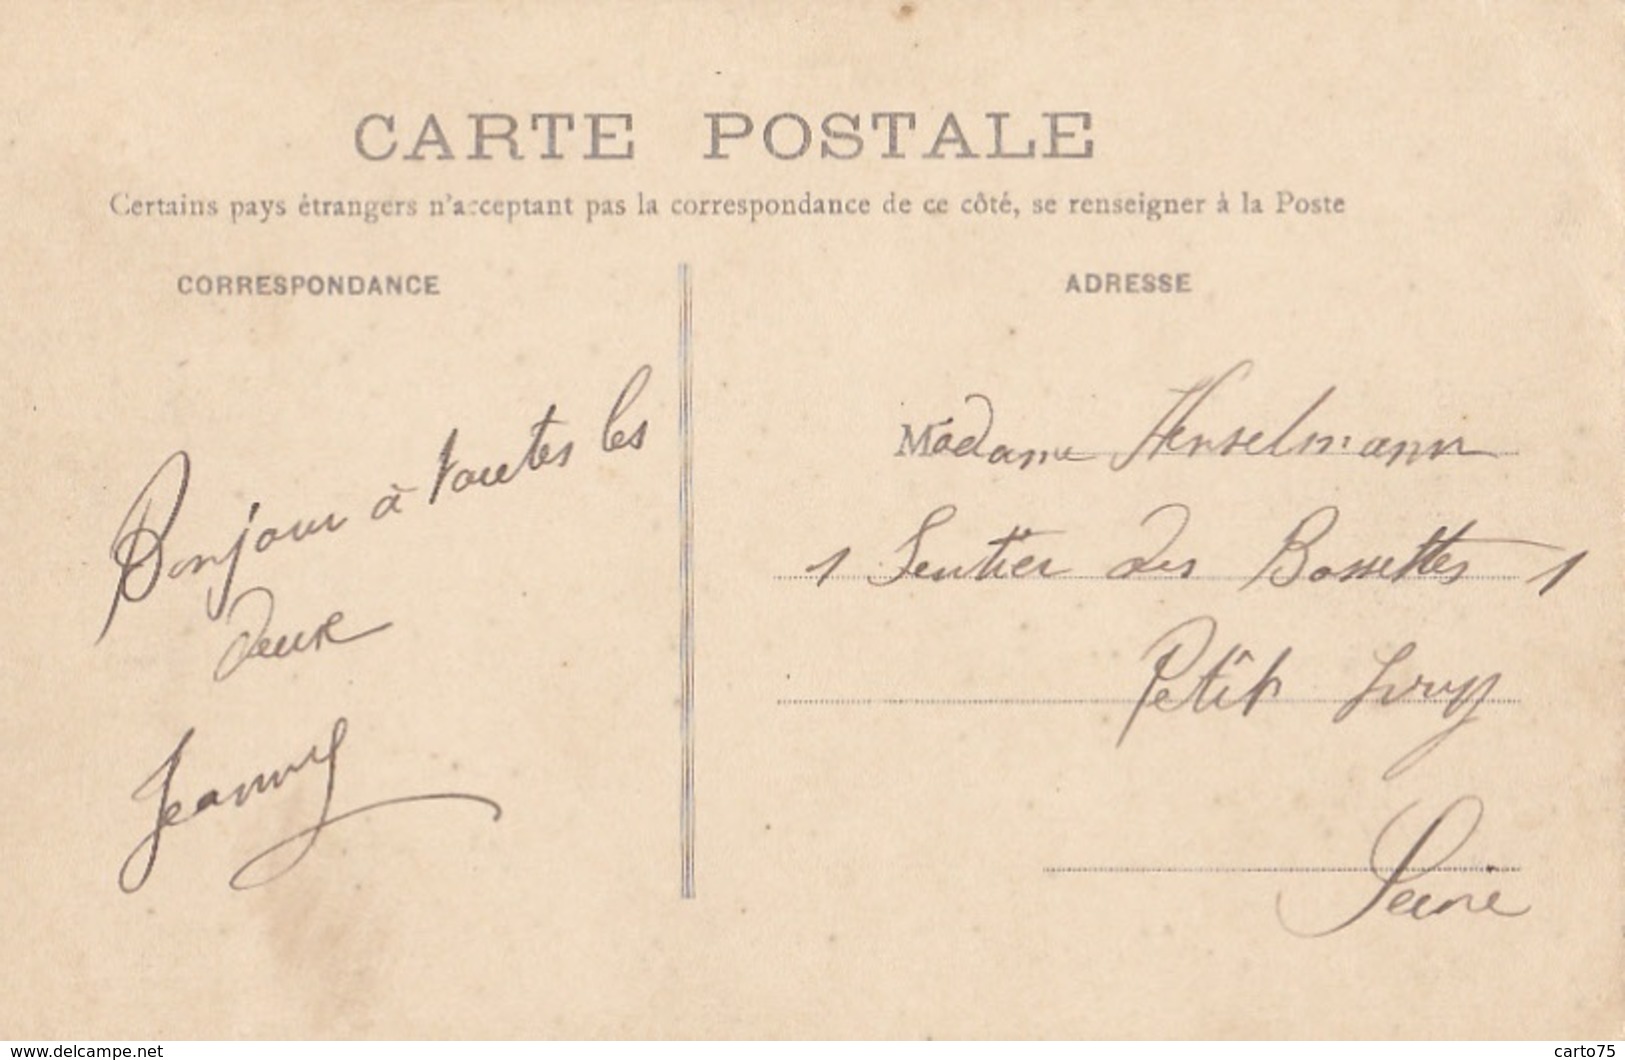 CARTE POSTALE
Certains pays étrangers n'acceptant pas la correspondance de ce côté, se renseigner à la Poste
CORRESPONDANCE
ADRESSE
Bonjour à toutes les
deux
Jeanny
Madame Henselmann
1 Sentier des Bossettes 1
Petit Ivry
Seine
www.delcampe.net
carto75